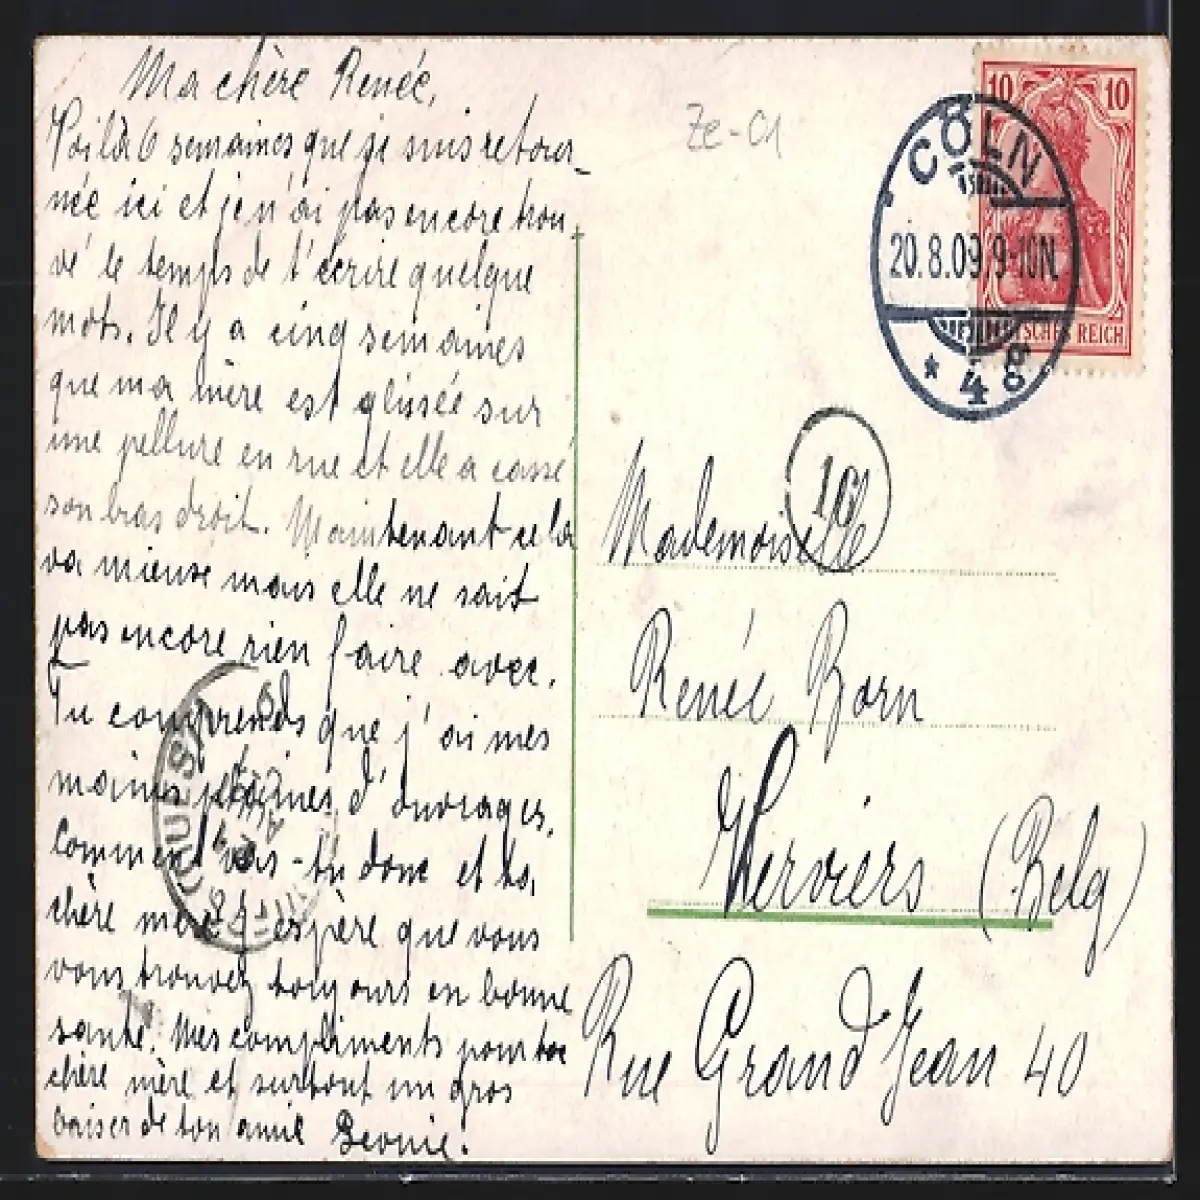 Ma chère Renée,
Voilà 6 semaines que je suis retour-
née ici et je n'ai pas encore trou-
vé le temps de t'écrire quelque
mots. Il y a cinq semaines
que ma mère est glissée sur
une pellure en rue et elle a cassé
son bras droit. Maintenant cela
va mieuse mais elle ne sait
pas encore rien faire avec.
Tu comprends que j'ai mes
mains pleines d'ouvrages.
Comment vas-tu donc et ta
chère mère j'espère que vous
vous trouvez toujours en bonne
santé. Mes compliments pour ta
chère mère et surtout un gros
baiser de ton amie Leonie.
Ze-01
10 10
DEUTSCHES REICH
CÖLN
20.8.09. 9-10N.
* 4g
1G
Mademoiselle
Renée Born
Verviers (Belg)
Rue Grand Jean 40